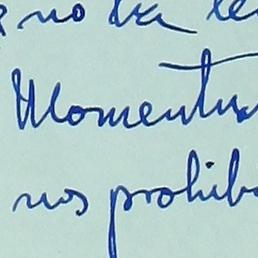 no
Momentu
nos prohib